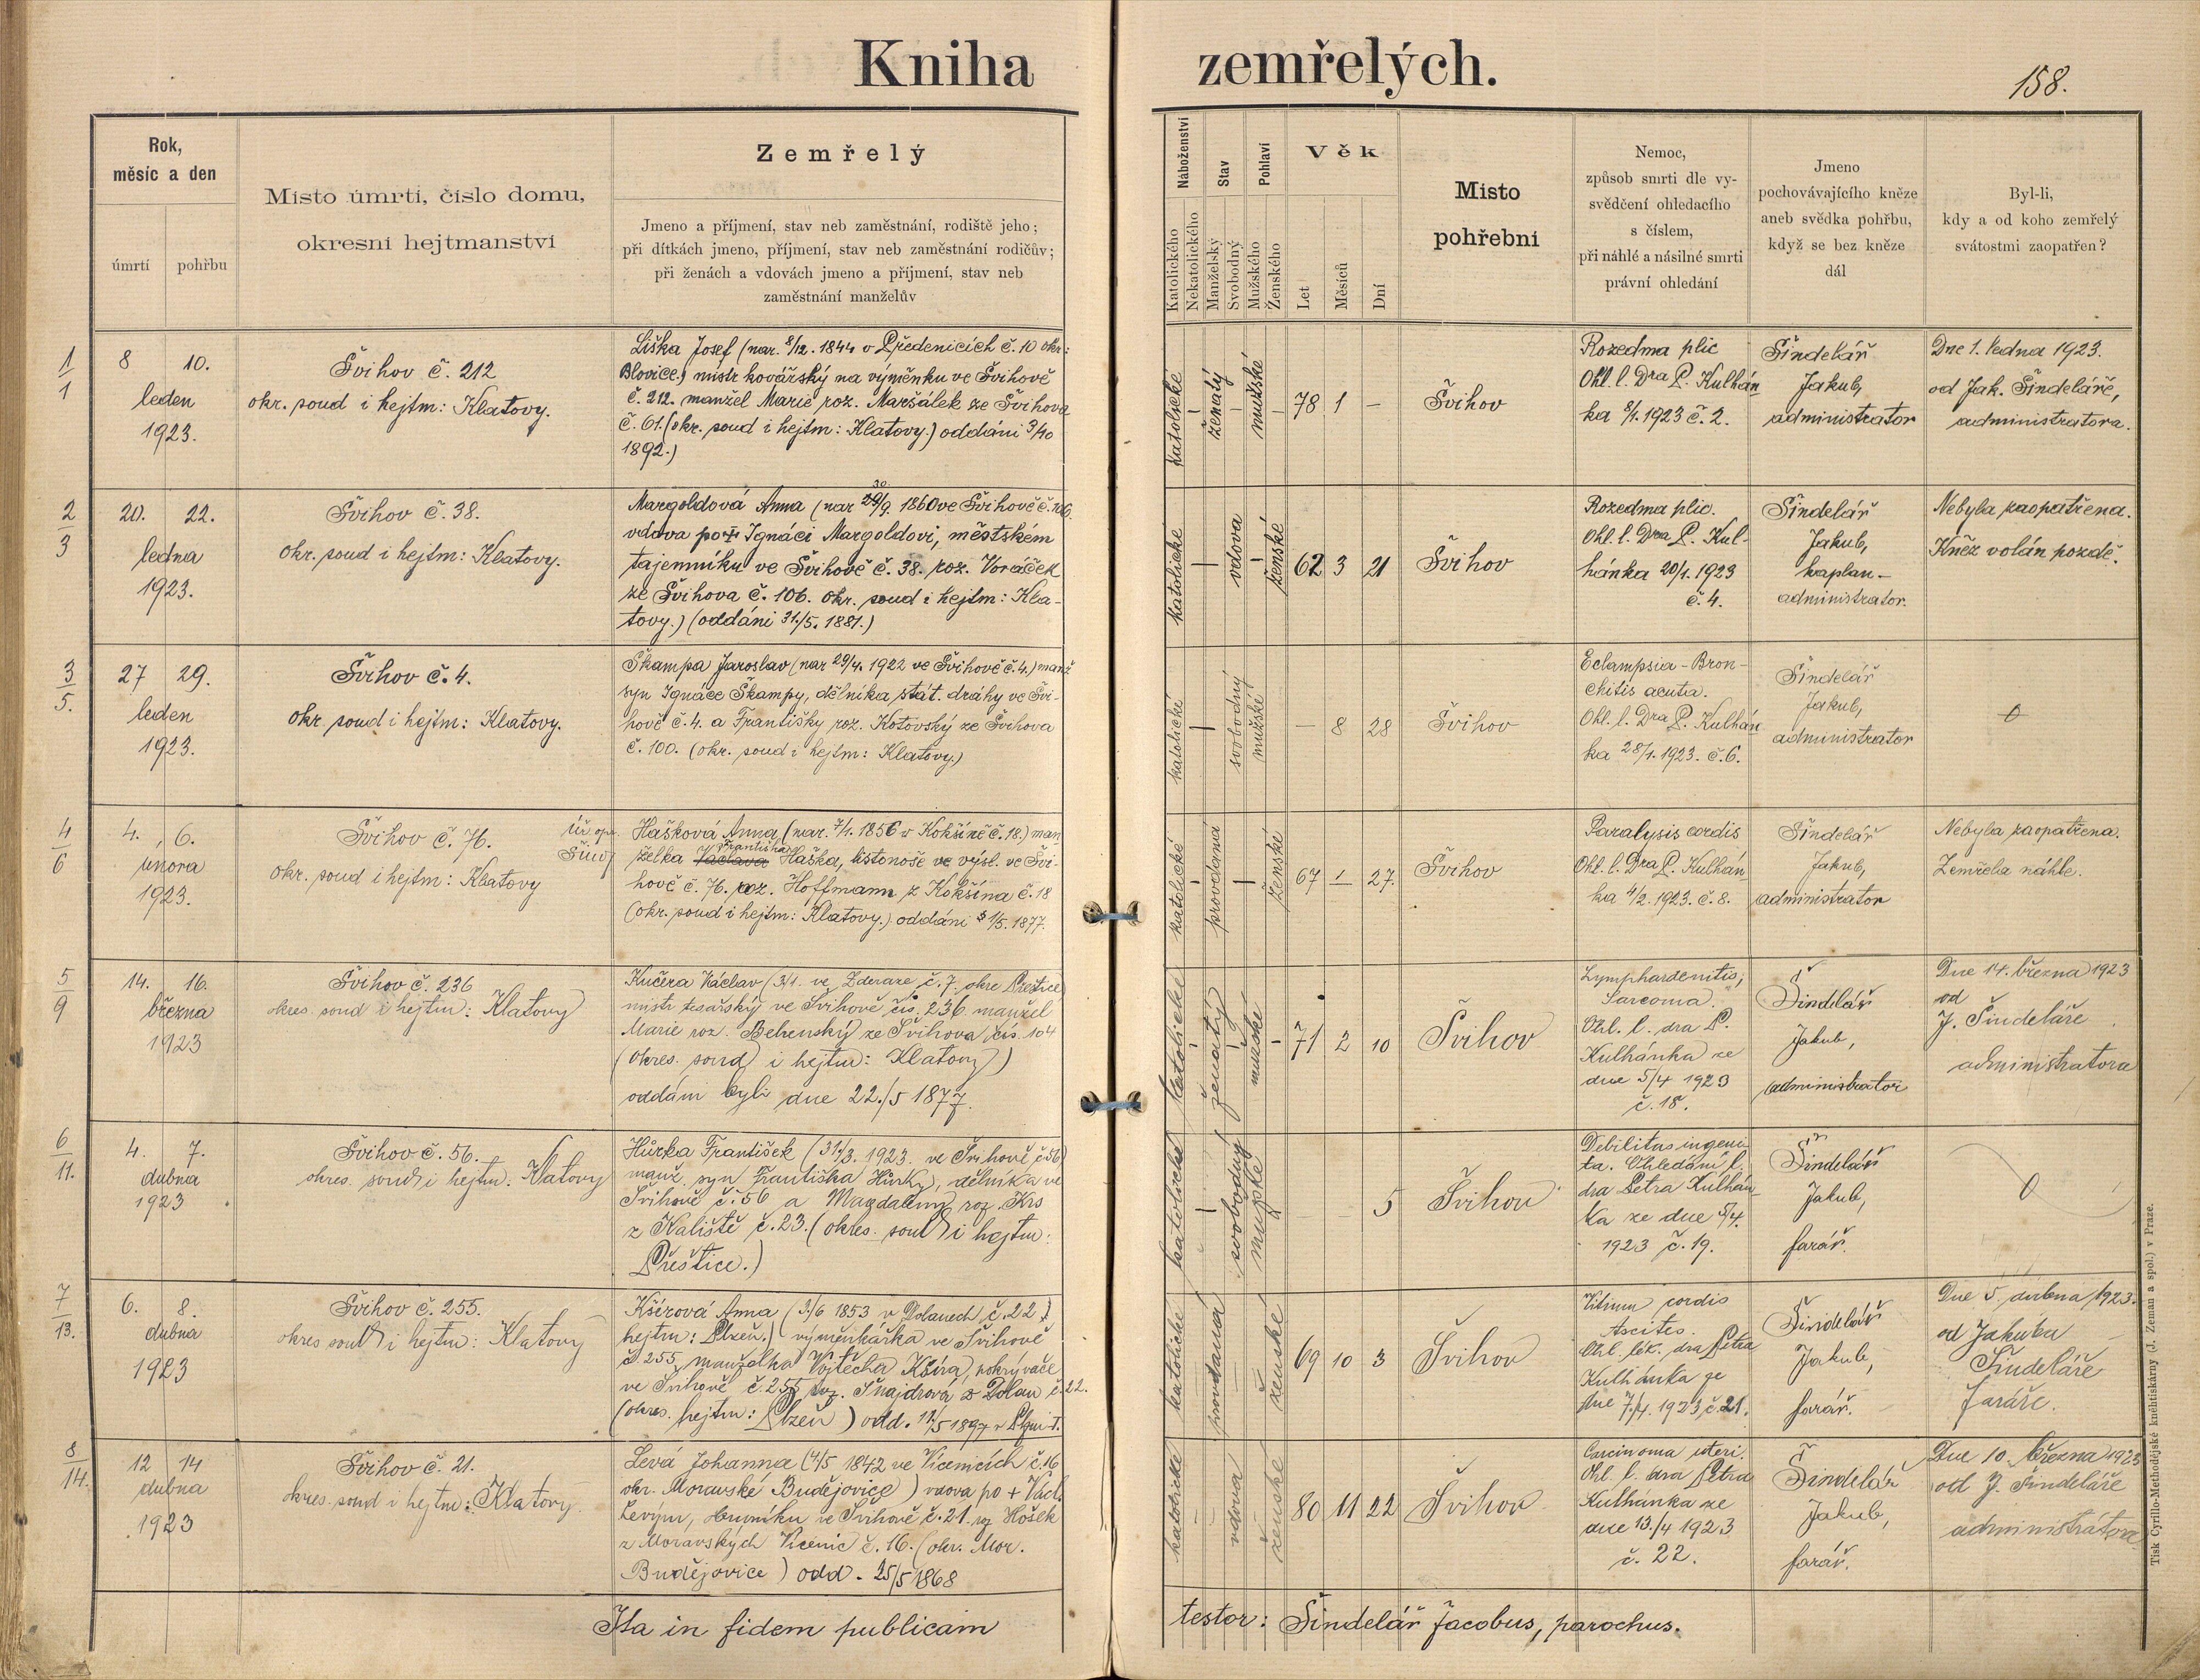 Kniha zemřelých.
158.
Rok,
měsíc a den
úmrtí
pohřbu
Místo úmrtí, číslo domu,
okresní hejtmanství
Zemřelý
Jmeno a příjmení, stav neb zaměstnání, rodiště jeho;
při dítkách jmeno, příjmení, stav neb zaměstnání rodičův;
při ženách a vdovách jmeno a příjmení, stav neb
zaměstnání manželův
Náboženství
Katolického
Nekatolického
Stav
Manželský
Svobodný
Pohlaví
Mužského
Ženského
Věk
Let
Měsíců
Dní
Místo
pohřební
Nemoc,
způsob smrti dle vy-
svědčení ohledacího
s číslem,
při náhlé a násilné smrti
právní ohledání
Jmeno
pochovávajícího kněze
aneb svědka pohřbu,
když se bez kněze
dál
Byl-li,
kdy a od koho zemřelý
svátostmi zaopatřen?
1/1
8 10.
leden
1923.
Švihov č. 212
okr. soud i hejtm: Klatovy.
Liška Josef (nar. 8/12. 1844 v Předenicích č. 10 okr:
Blovice.) mistr kovářský na výměnku ve Švihově
č. 212. manžel Marie roz. Maršálek ze Švihova
č. 61. (okr. soud i hejtm: Klatovy.) oddáni 3/10
1892.)
katolické
ženatý
mužské
78 1 –
Švihov
Rozedma plic
Ohl. l. Dra P. Kulhán
ka 8/1. 1923 č. 2.
Šindelář
Jakub,
administrator
Dne 1. ledna 1923.
od Jak. Šindeláře,
administratora.
2/3
20. 22.
ledna
1923.
Švihov č. 38.
okr. soud i hejtm: Klatovy.
30
Margoldová Anna (nar 29/9. 1860 ve Švihově č. 106.
vdova po † Ignáci Margoldovi, městském
tajemníku ve Švihově č. 38. roz. Voráček
ze Švihova č. 106. okr. soud i hejtm: Kla-
tovy.) (oddáni 31./5. 1881.)
katolické
vdova
ženské
62 3 21
Švihov
Rozedma plic.
Ohl. l. Dra P. Kul-
hánka 20/1. 1923
č. 4.
Šindelář
Jakub,
kaplan-
administrator.
Nebyla zaopatřena.
Kněz volán pozdě.
3/5.
27 29.
leden
1923.
Švihov č. 4.
okr. soud i hejtm: Klatovy.
Škampa Jaroslav (nar 29/4. 1922 ve Švihově č. 4.) manž
syn Ignáce Škampy, dělníka stát. dráhy ve Švi-
hově č. 4. a Františky roz. Kotovský ze Švihova
č. 100. (okr. soud i hejtm: Klatovy.)
katolické
svobodný
mužské
– 8 28
Švihov
Eclampsia - Bron-
chitis acuta.
Ohl. l. Dra P. Kulhán
ka 28/1. 1923. č. 6.
Šindelář
Jakub,
administrator
0
4/6
4. 6.
února
1923.
Švihov č. 76.
okr. soud i hejtm: Klatovy
Úř. opr.
Hašková Anna (nar. 7/1. 1856 v Kokšíně č. 18.) man
Františka
želka Václava Haška, listonoše ve výsl. ve Švi-
hově č. 76. roz. Hoffmann z Kokšína č. 18
(okr. soud i hejtm: Klatovy.) oddáni 1/5. 1877.
katolické
provdaná
ženské
67 1 27.
Švihov
Paralysis cordis
Ohl. l. Dra P. Kulhán-
ka 4/2. 1923. č. 8.
Šindelář
Jakub,
administrator
Nebyla zaopatřena.
Zemřela náhle.
5/9
14. 16.
března
1923
Švihov č. 236
okres. soud i hejtm: Klatovy
Kučera Václav (3/1. ve Zderaze č. 7. okre Přeštice)
mistr tesařský ve Švihově čís. 236. manžel
Marie roz. Behenský ze Švihova čís. 104
(okres. soud i hejtm: Klatovy)
oddáni byli dne 22./5 1877.
katolické
ženatý
mužské
71 2 10
Švihov
Lymphardenitis,
Sarcoma.
Ohl. l. dra P.
Kulhánka ze
dne 5/4 1923
č. 18.
Šindelář
Jakub,
administrator
Dne 14. března 1923
od
J. Šindeláře
administratora
6/11.
4. 7.
dubna
1923
Švihov č. 56.
okres. soud i hejtm. Klatovy
Hůrka František (31/3. 1923. ve Švihově č 56)
manž. syn Františka Hůrky, dělníka ve
Švihově č. 56 a Magdaleny roz. Krs
z Kaliště č. 23. (okres. soud i hejtm:
Přeštice.)
katolické
svobodný
mužské
5
Švihov
Debilitas ingeni-
ta. Ohledání l.
dra Petra Kulhán-
ka ze dne 5/4.
1923 č. 19.
Šindelář
Jakub,
farář.
0
7/13.
6. 8.
dubna
1923
Švihov č. 255.
okres soud i hejtm: Klatovy
Kšírová Anna (3./6 1853 v Dolanech č. 22.)
hejtm: Plzeň.) výměnkářka ve Švihově
č. 255, manželka Vojtěcha Kšíra, pokrývače
ve Švihově č. 255 roz. Šnajdrová z Dolan č. 22.
(okres. hejtm: Plzeň) odd. 11/5 1897 v Plzni-I.
katolické
provdaná
ženské
69 10 3
Švihov
Vitium cordis
Ascites.
Ohl. lék. dra Petra
Kulhánka ze
dne 7./4. 1923 č. 21.
Šindelář
Jakub,
farář.
Dne 5. dubna 1923.
od Jakuba
Šindeláře
faráře.
8/14.
12 14
dubna
1923
Švihov č. 21.
okres. soud i hejtm: Klatovy.
Levá Johanna (4/5 1842 ve Vícenicích č. 16
okr. Moravské Budějovice) vdova po + Václ.
Levým, ve Švihově č. 21. roz Hošek
z Moravských Vícenic č. 16. (okr. Mor.
Budějovice) odd. 25/5 1868
katolické
vdova
ženské
80 11 22
Švihov
Carcinoma uteri.
Ohl. l. dra Petra
Kulhánka ze
dne 13./4 1923
č. 22.
Šindelář
Jakub,
farář.
Dne 10. března 1923
od J. Šindeláře
administrátora
Ita in fidem publicam testor: Šindelář Jacobus, parochus.
Tisk Cyrillo-Methodějské knihtiskárny (J. Zeman a spol.) v Praze.